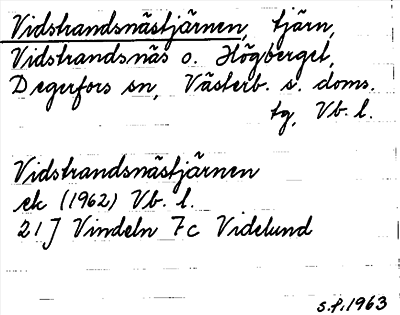 Vidstrandsnästjärnen, tjärn,
Vidstrandsnäs o. Högberget,
Degerfors sn, Västerb. s. doms.
tg, Vb. l.
Vidstrandsnästjärnen
ek (1962) Vb. l.
21 J Vindeln 7c Videlund
s.f. 1963